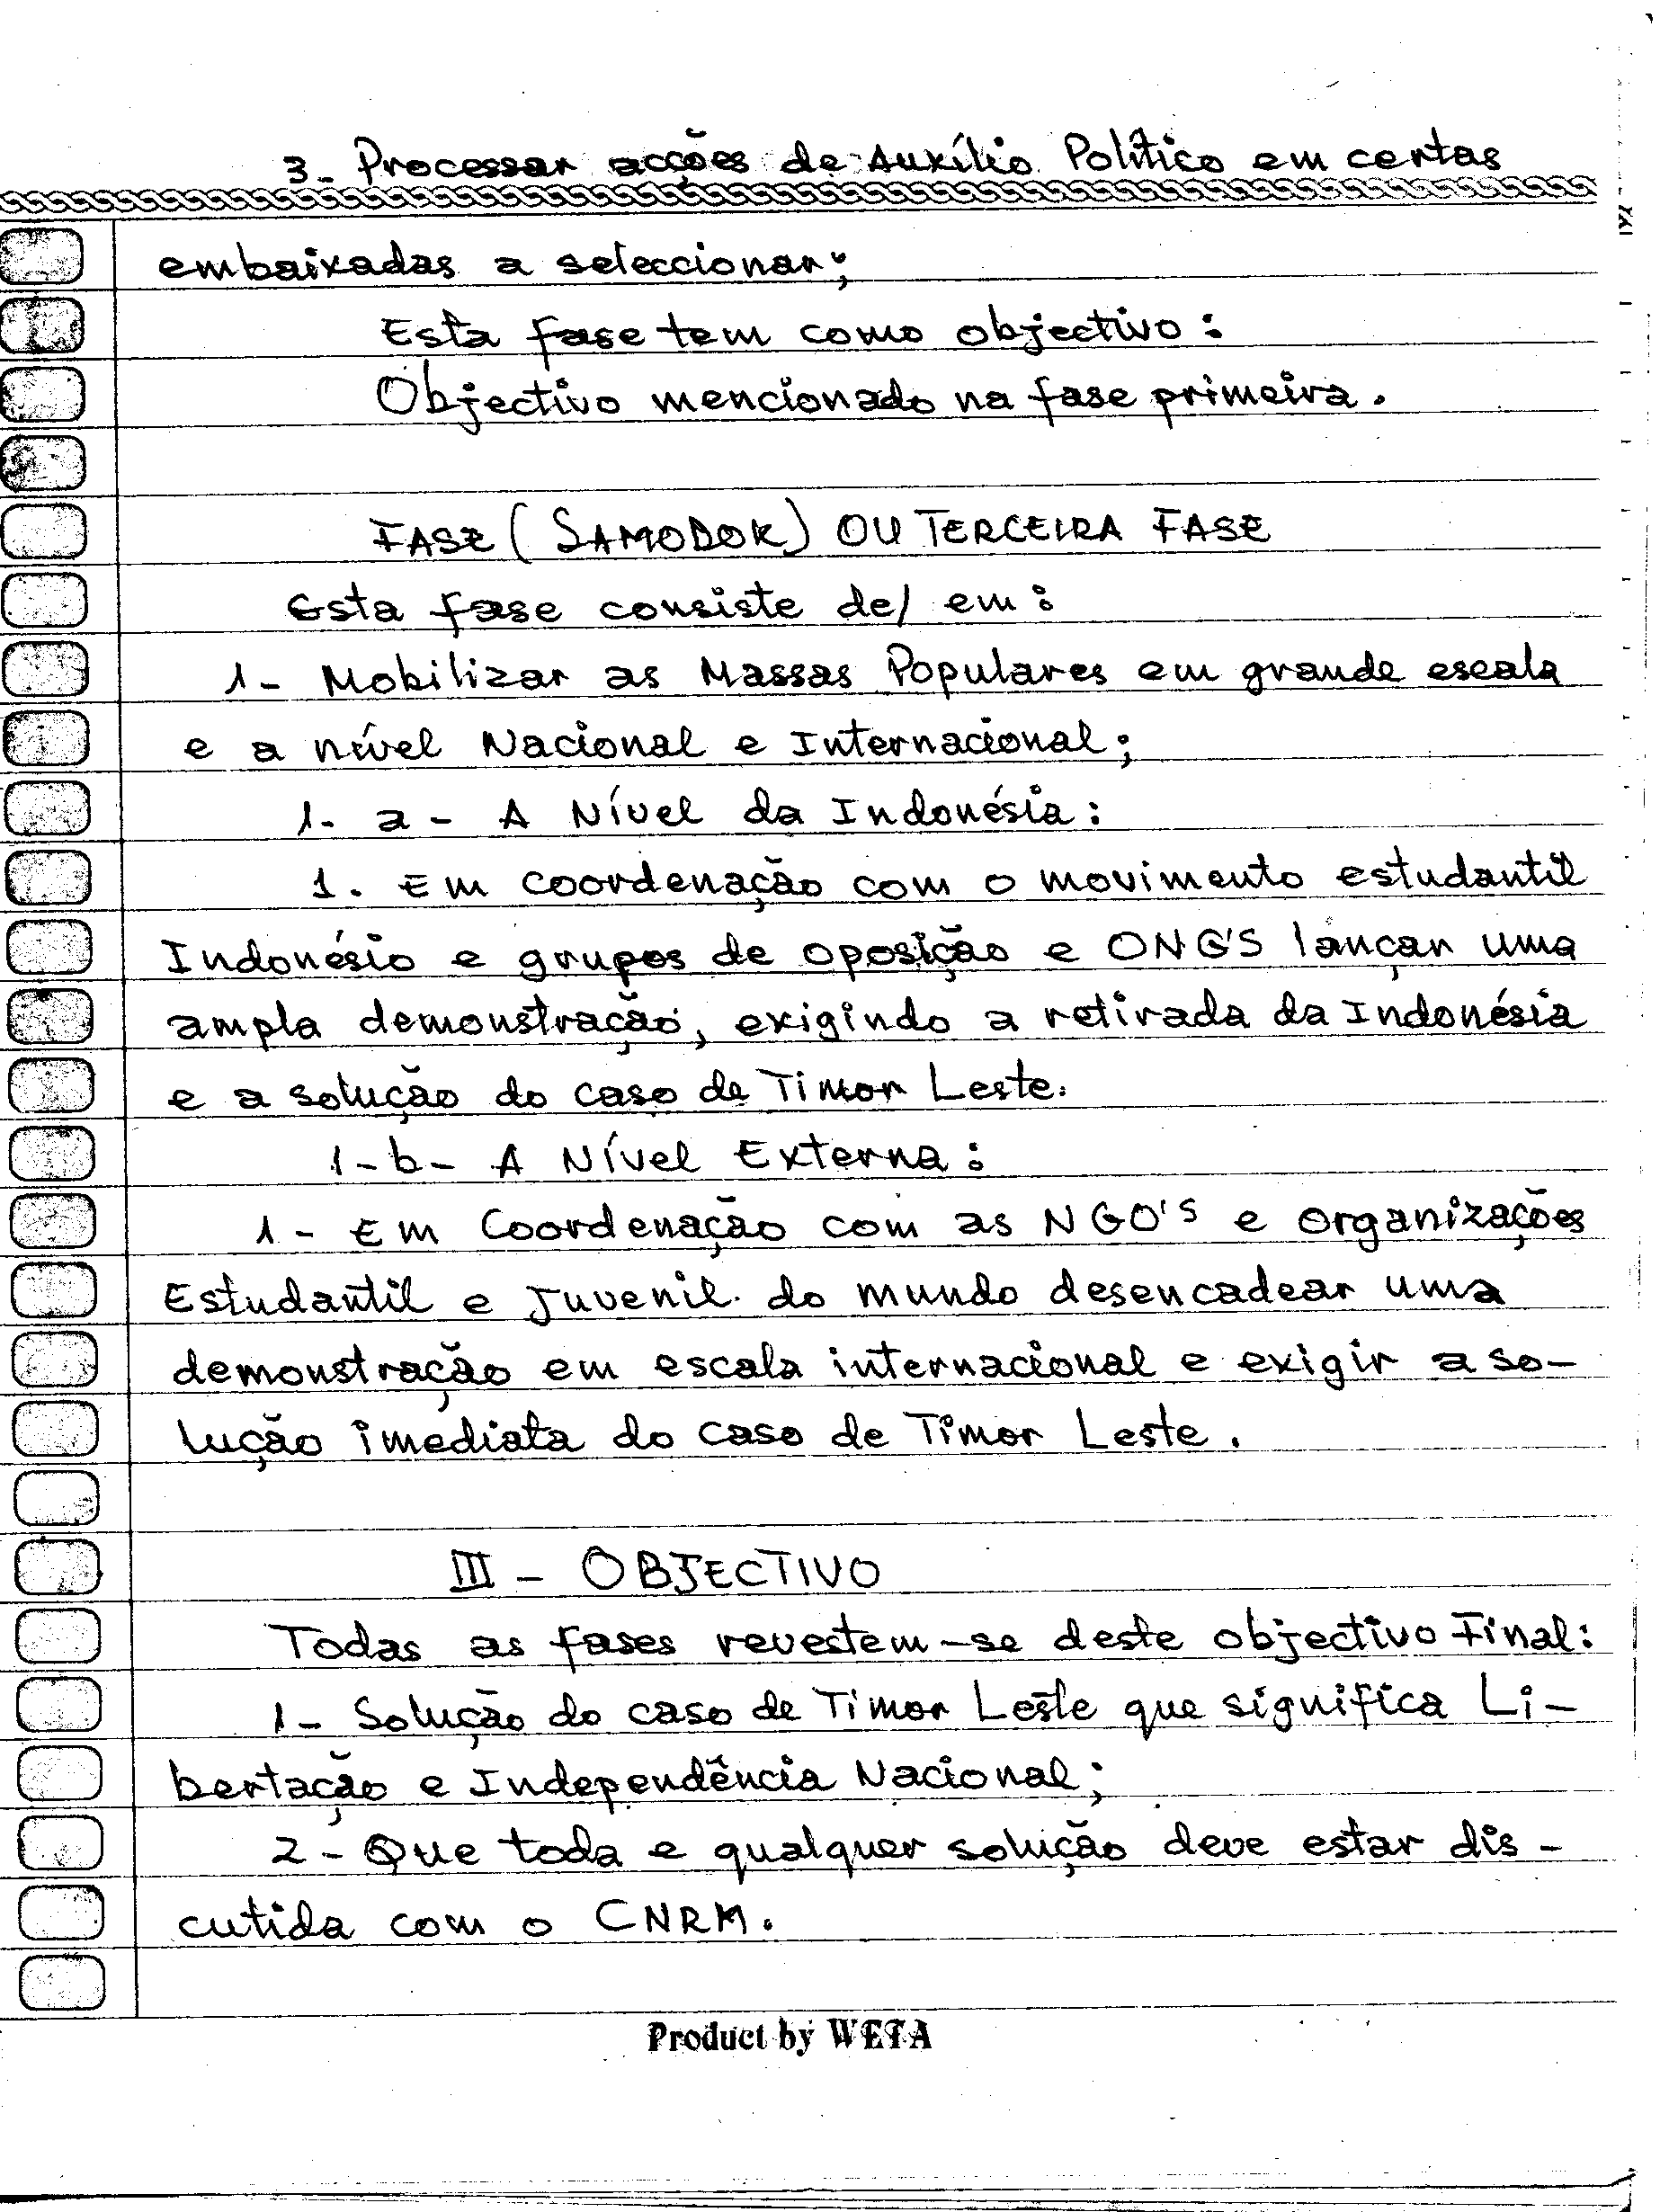 3- Processar acções de Auxílio Político em certas
embaixadas a seleccionar;
Esta fase tem como objectivo:
Objectivo mencionado na fase primeira.
FASE (SAMODOK) OU TERCEIRA FASE
Esta fase consiste de/ em:
1- Mobilizar as Massas Populares em grande escala
e a nível Nacional e Internacional;
1- a - A Nível da Indonésia:
1. Em coordenação com o movimento estudantil
Indonésio e grupos de oposição e ONG'S lançar uma
ampla demonstração, exigindo a retirada da Indonésia
e a solução do caso de Timor Leste.
1-b- A Nível Externa:
1- Em Coordenação com as NGO'S e organizações
Estudantil e Juvenil do mundo desencadear uma
demonstração em escala internacional e exigir a so-
lução imediata do caso de Timor Leste.
III - OBJECTIVO
Todas as fases revestem-se deste objectivo Final:
1- Solução do caso de Timor Leste que significa Li-
bertação e Independência Nacional;
2- Que toda e qualquer solução deve estar dis-
cutida com o CNRM.
Product by WETA